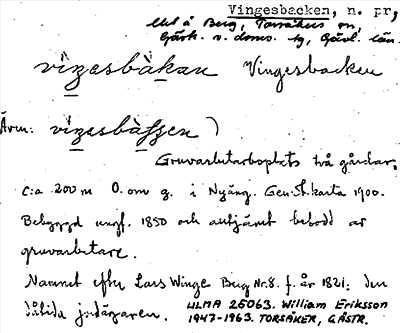 Vingesbacken, n. pr,
Utl å Berg, Torsåkers sn,
Gästr. v. doms. tg, Gävl. län.
vi̱ŋesbà̱kan Vingesbacken
Även: vi̱ŋesbàššen )
Gruvarbetarboplats två gårdar,
c:a 200 m O. om g. i Nyäng. Gen.St. karta 1900.
Bebyggd ungf. 1850 och alltjämt bebodd av
gruvarbetare.
Namnet efter Lars Winge Berg Nr. 8. f. år 1821: den
dåtida jordägaren. ULMA 25063. William Eriksson
1947-1963. TORSÅKER, GÄSTR.